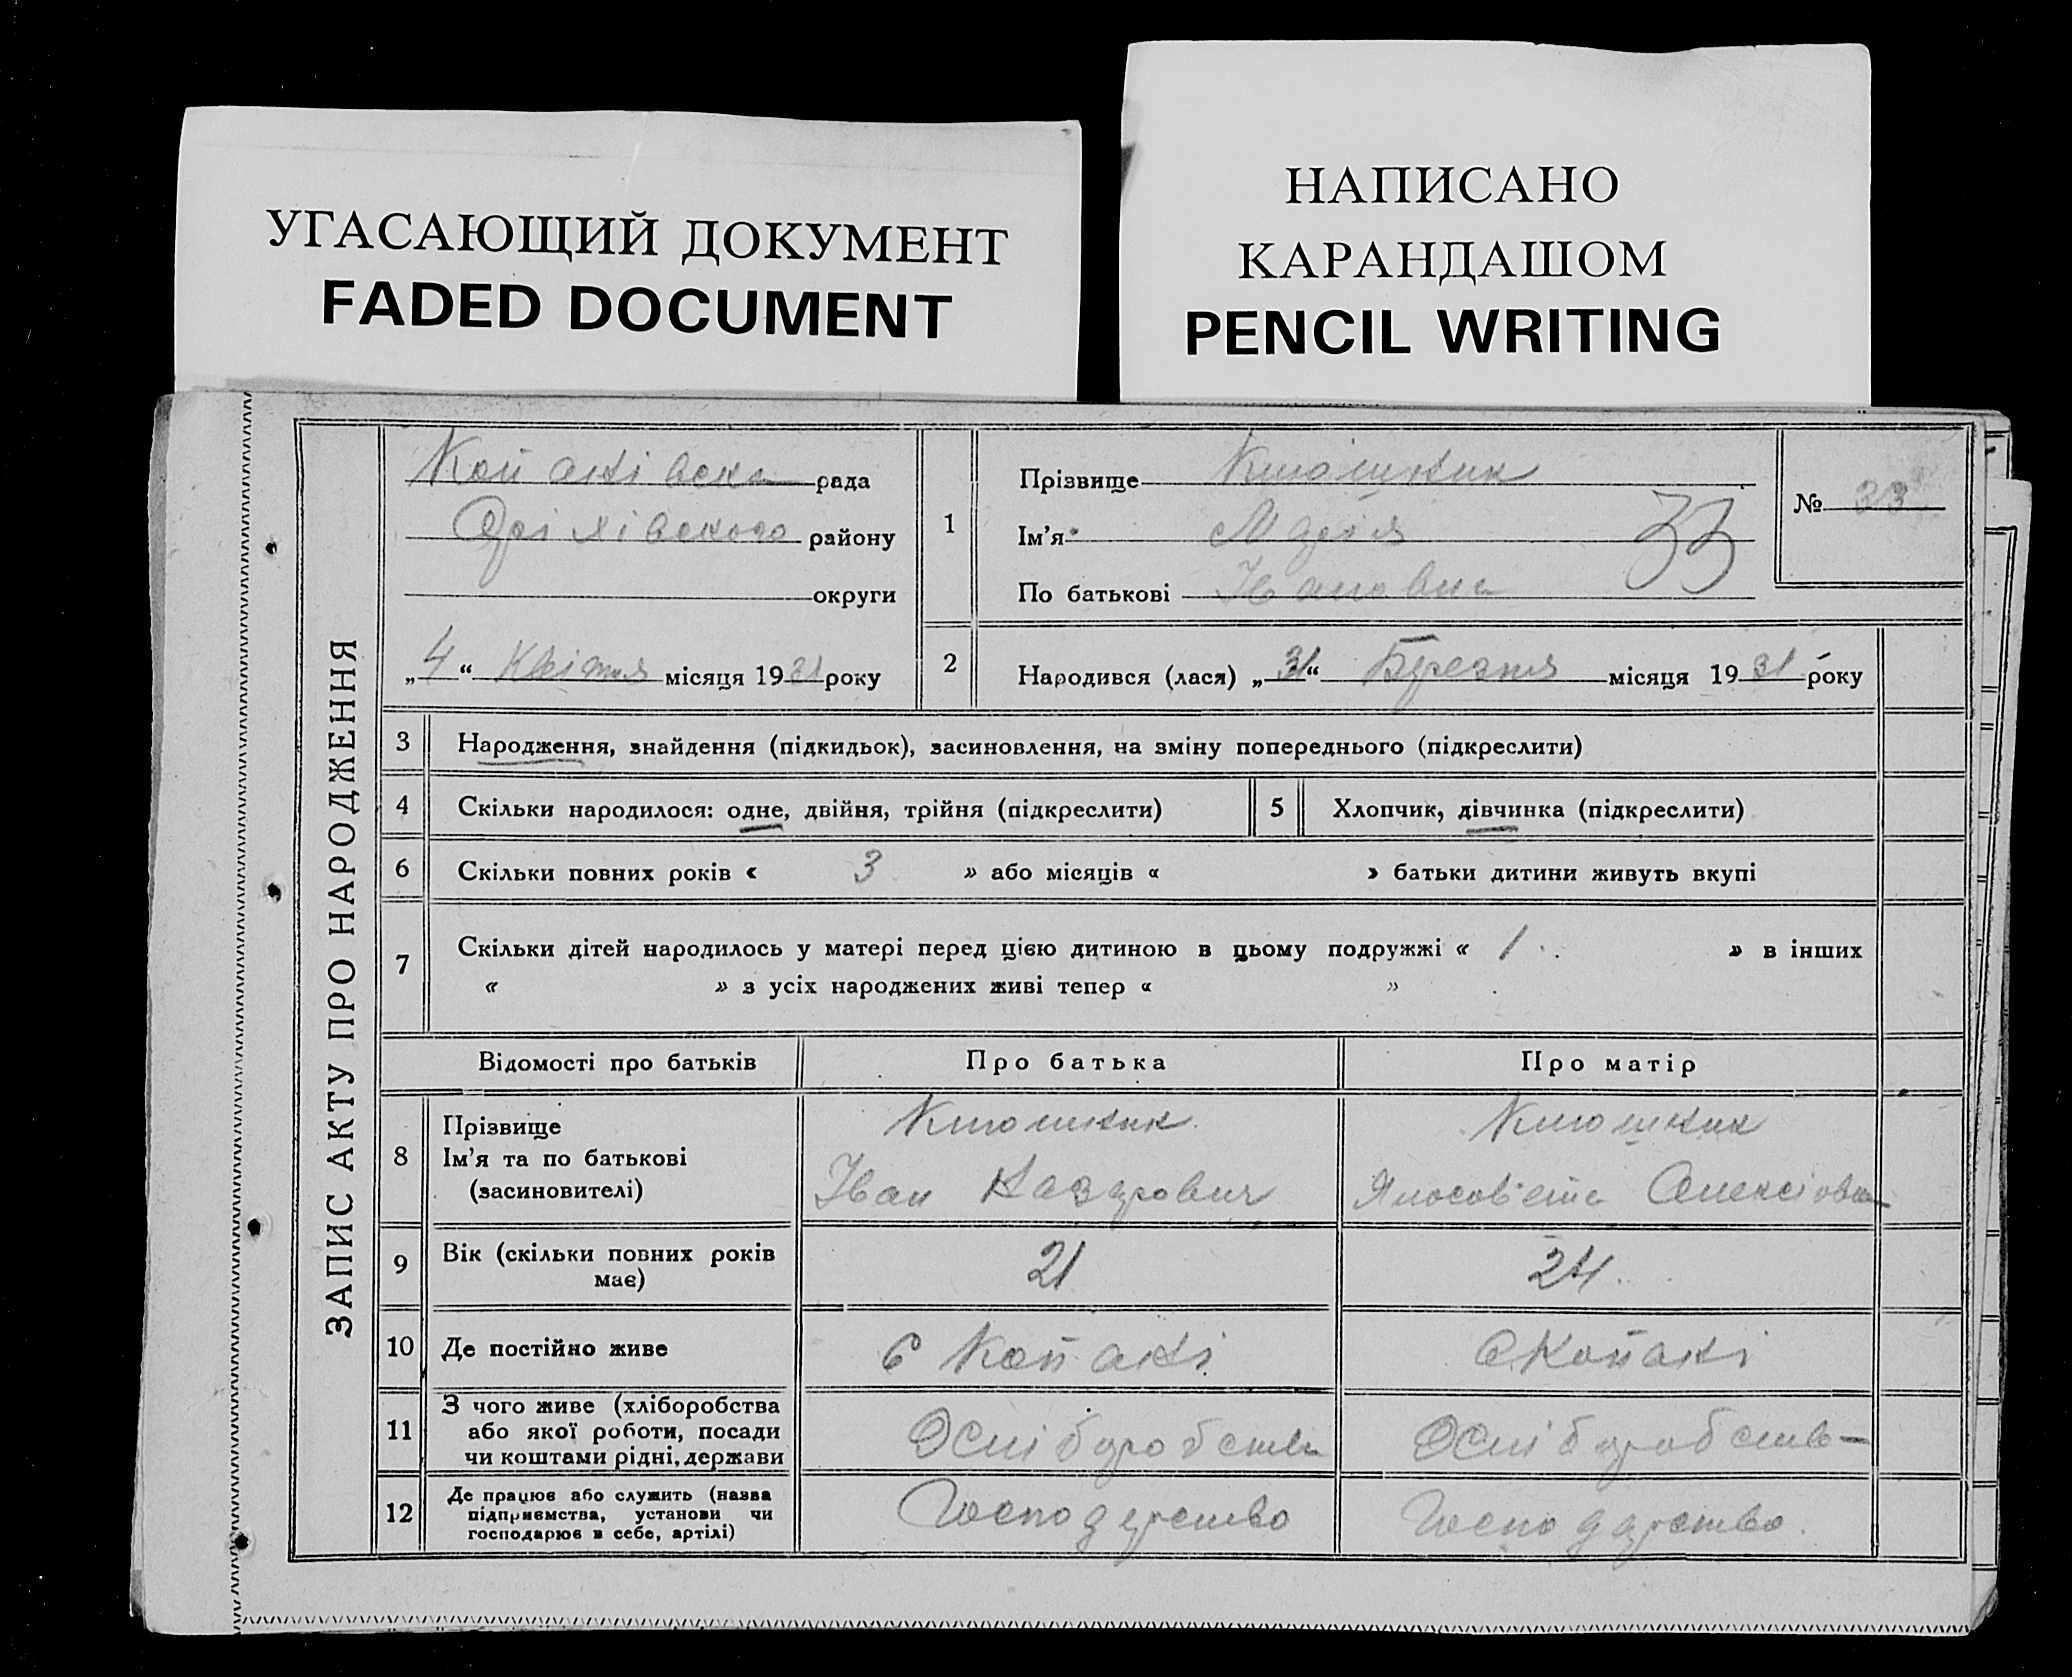 УГАСАЮЩИЙ ДОКУМЕНТ
FADED DOCUMENT
НАПИСАНО
КАРАНДАШОМ
PENCIL WRITING
ЗАПИС АКТУ ПРО НАРОДЖЕННЯ
рада
району
округи
„4“ Квітня місяця 1931 року
1
Прізвище
Ім'я Марія
По батькові Іванівна
№ 33
33
2
Народився (лася) „31“ Березня місяця 1931 року
3 Народження, знайдення (підкидьок), засиновлення, на зміну попереднього (підкреслити)
4 Скільки народилося: одне, двійня, трійня (підкреслити)
5 Хлопчик, дівчинка (підкреслити)
6 Скільки повних років « 3 » або місяців « » батьки дитини живуть вкупі
7 Скільки дітей народилось у матері перед цією дитиною в цьому подружжі « 1 » в інших
« » з усіх народжених живі тепер « »
Відомості про батьків Про батька Про матір
8 Прізвище
Ім'я та по батькові
(засиновителі)
Іван Назарович
9 Вік (скільки повних років
має)
21 24
10 Де постійно живе
с Копачі с Копачі
11 З чого живе (хліборобства
або якої роботи, посади
чи коштами рідні, держави
Хліборобство Хліборобство
12 Де працює або служить (назва
підприємства, установи чи
господарює в себе, артілі)
Господарство Господарство